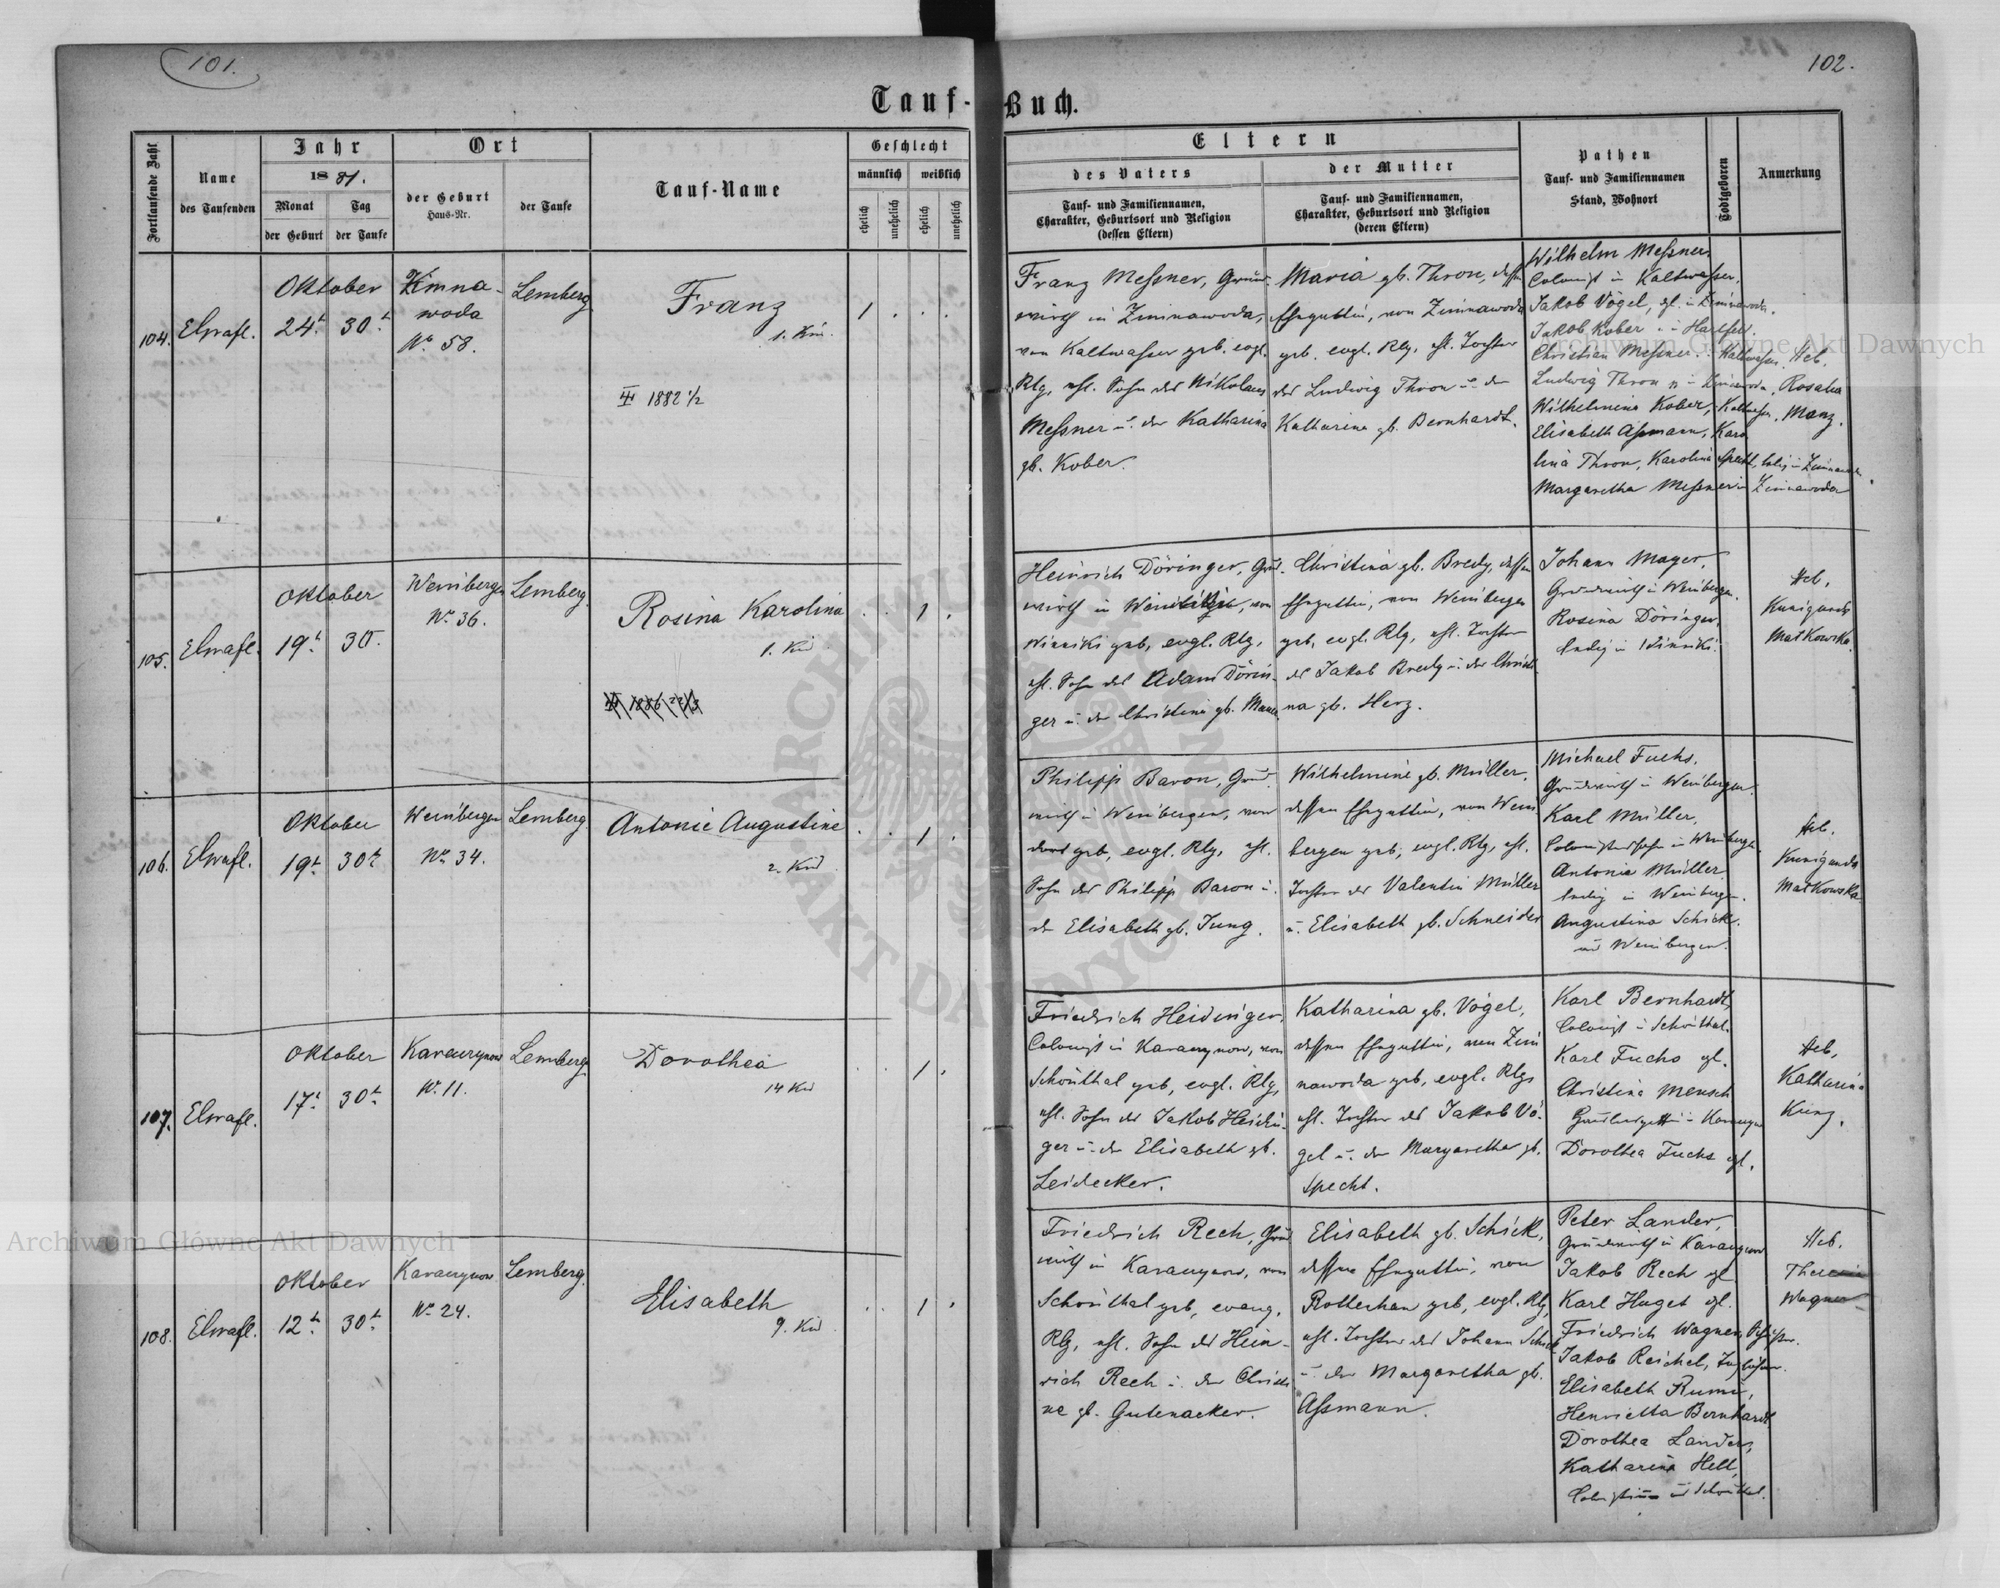 101.
102.
Tauf-Buch.
Fortlaufende Zahl
Name
des Taufenden
Jahr
18 81.
Monat
Tag
der Geburt
der Taufe
Ort
der Geburt
Haus-Nr.
der Taufe
Tauf-Name
Geschlecht
männlich
weiblich
ehelich
unehelich
ehelich
unehelich
Eltern
des Vaters
Tauf- und Familiennamen,
Charakter, Geburtsort und Religion
(dessen Eltern)
der Mutter
Tauf- und Familiennamen,
Charakter, Geburtsort und Religion
(deren Eltern)
Pathen
Tauf- und Familiennamen
Stand, Wohnort
Todtgeboren
Anmerkung
104.
Oktober
24t
30t
Zimna-
woda
No 58.
Lemberg
Franz
1. Kin.
1882 1/2
1
Franz Meßner, Grund-
wirth in Zimnawoda,
von Kaltwasser geb. evgl.
Rlg, ehl. Sohn des Nikolaus
Meßner u. der Katharina
gb. Kober.
Maria gb. Thron, dessen
Ehegattin, von Zimnawoda
geb. evgl. Rlg, ehl. Tochter
des Ludwig Thron u. der
Katharina gb. Bernhardt.
Wilhelm Meßner,
Colonist in Kaltwasser,
Jakob Vogel, gl. in Zimnawoda.
Jakob Kober in Hartfeld.
Christian Meßner, Kaltwasser.
Ludwig Thron in Zimnawoda,
Wilhelmina Kober, Kaltwasser,
Elisabeth Aßmann, Karo
lina Thron, Karolina Specht, ledig in Zimnawoda
Margaretha Meßnerin Zimnawoda
Heb.
Rosalia
Manz.
105.
Oktober
19t
30t
Weinbergen
No 36.
Lemberg
Rosina Karolina
1. Kind
1
Heinrich Döringer, Grund-
wirth in, von
Winniki geb, evgl. Rlg,
ehl. Sohn des Adam Dörin-
ger u. der Christina gb.
Christina gb. Bredy, dessen
Ehegattin, von Weinbergen
geb, evgl. Rlg, ehl. Tochter
des Jakob Bredy u. der Christi
na gb. Herz.
Johann Mayer,
Grundwirth in Weinbergen.
Rosina Döringer,
ledig in Winniki.
Heb.
Kunigunde
Matkowska.
106.
Oktober
19t
30t
Weinbergen
No 34.
Lemberg
Antonie Augustine
2. Kind
1
Philipp Baron, Grund-
wirth in Weinbergen, von
dort geb, evgl. Rlg, ehl.
Sohn des Philipp Baron u.
der Elisabeth gb. Jung.
Wilhelmine gb. Müller,
dessen Ehegattin, von Wein
bergen geb, evgl. Rlg, ehl.
Tochter des Valentin Müller
u. Elisabeth gb. Schneider
Michael Fuchs,
Grundwirth in Weinbergen.
Karl Müller,
Colonistensohn in Weinbergen.
Antonia Müller
ledig in Weinbergen.
Augustina Schick.
in Weinbergen.
Heb.
Kunigunda
Matkowska
107.
Oktober
17t
30t
Karaczynow
No 11.
Lemberg
Dorothea
14 Kind
1
Friedrich Heidinger,
Colonist in Karaczynow, von
Schönthal geb, evgl. Rlg,
ehl. Sohn des Jakob Heidin-
ger u. der Elisabeth gb.
Leidecker.
Katharina gb. Vogel,
dessen Ehegattin, von Zim
nawoda geb, evgl. Rlg,
ehl. Tochter des Jakob Vo-
gel u. der Margaretha gb.
Specht.
Karl Bernhardt,
Colonist in Schönthal.
Karl Fuchs gl.
Christina Mensch
Dorothea Fuchs gl.
Heb.
Katharina
Kunz.
108.
Oktober
12t
30t
Karaczynow
No 24.
Lemberg.
Elisabeth
9. Kind
1
Friedrich Rech, Grund
wirth in Karaczynow, von
Schönthal geb, evang.
Rlg, ehl. Sohn des Hein-
rich Rech u. der Christi
ne gb. Gutenacker.
Elisabeth gb. Schick,
dessen Ehegattin, von
Rottenhan geb, evgl. Rlg,
ehl. Tochter des Johann Schick
u. der Margaretha gb.
Aßmann.
Peter Lander,
Grundwirth in Karaczynow
Jakob Rech gl
Karl Huget gl.
Friedrich Wagner,
Jakob Reichel,
Elisabeth
Henrietta Bernhardt,
Dorothea Lander,
Katharina Hell,
in Schönthal.
Heb.
Theresia
Wagner
Archiwum Główne Akt Dawnych
Archiwum Główne Akt Dawnych